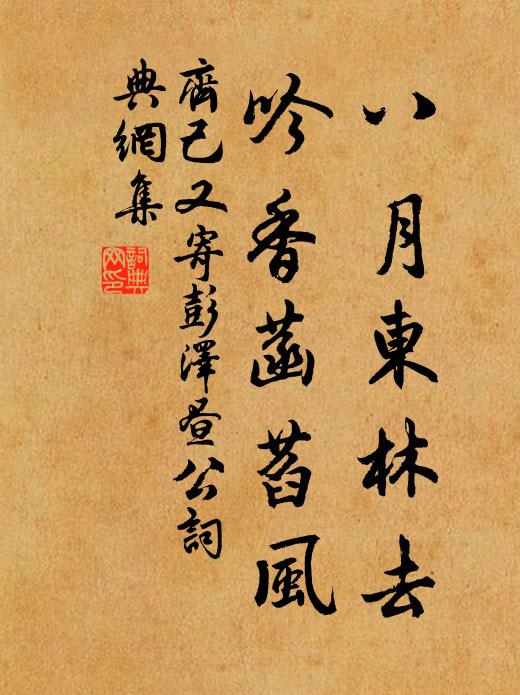 八月東林去
吟香菡萏風
齊己又寄彭澤晝公詞
典網集
詞典
网印